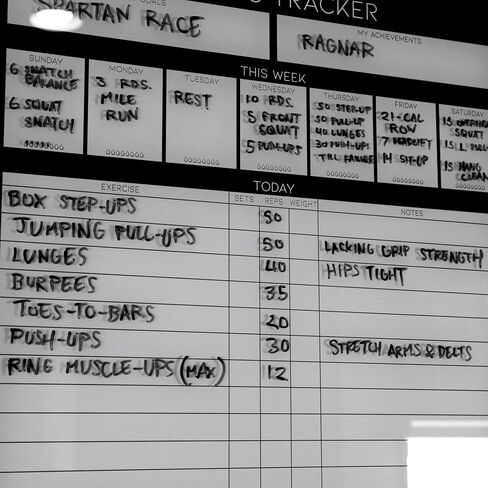 GOALS
TRACKER
SPARTAN RACE
MY ACHIEVEMENTS
RAGNAR
THIS WEEK
SUNDAY
6 SNATCH
BALANCE
6 SQUAT
SNATCH
MONDAY
3 RDS.
MILE
RUN
TUESDAY
REST
WEDNESDAY
10 RDS.
5 FRONT
SQUAT
5 PUSH-UPS
THURSDAY
50 STEP-UP
50 PULL-UP
40 LUNGES
30 PUSH-UPS
TILL FAILURE
FRIDAY
21-CAL
ROW
7 DEADLIFT
14 SIT-UP
SATURDAY
15 OVERHEAD
SQUAT
15 L PULL-
15 HANG
CLEAN
TODAY
EXERCISE SETS REPS WEIGHT NOTES
BOX STEP-UPS 50
JUMPING PULL-UPS 50 LACKING GRIP STRENGTH
LUNGES 40 HIPS TIGHT
BURPEES 35
TOES-TO-BARS 20
PUSH-UPS 30 STRETCH ARMS & DELTS
RING MUSCLE-UPS (MAX) 12